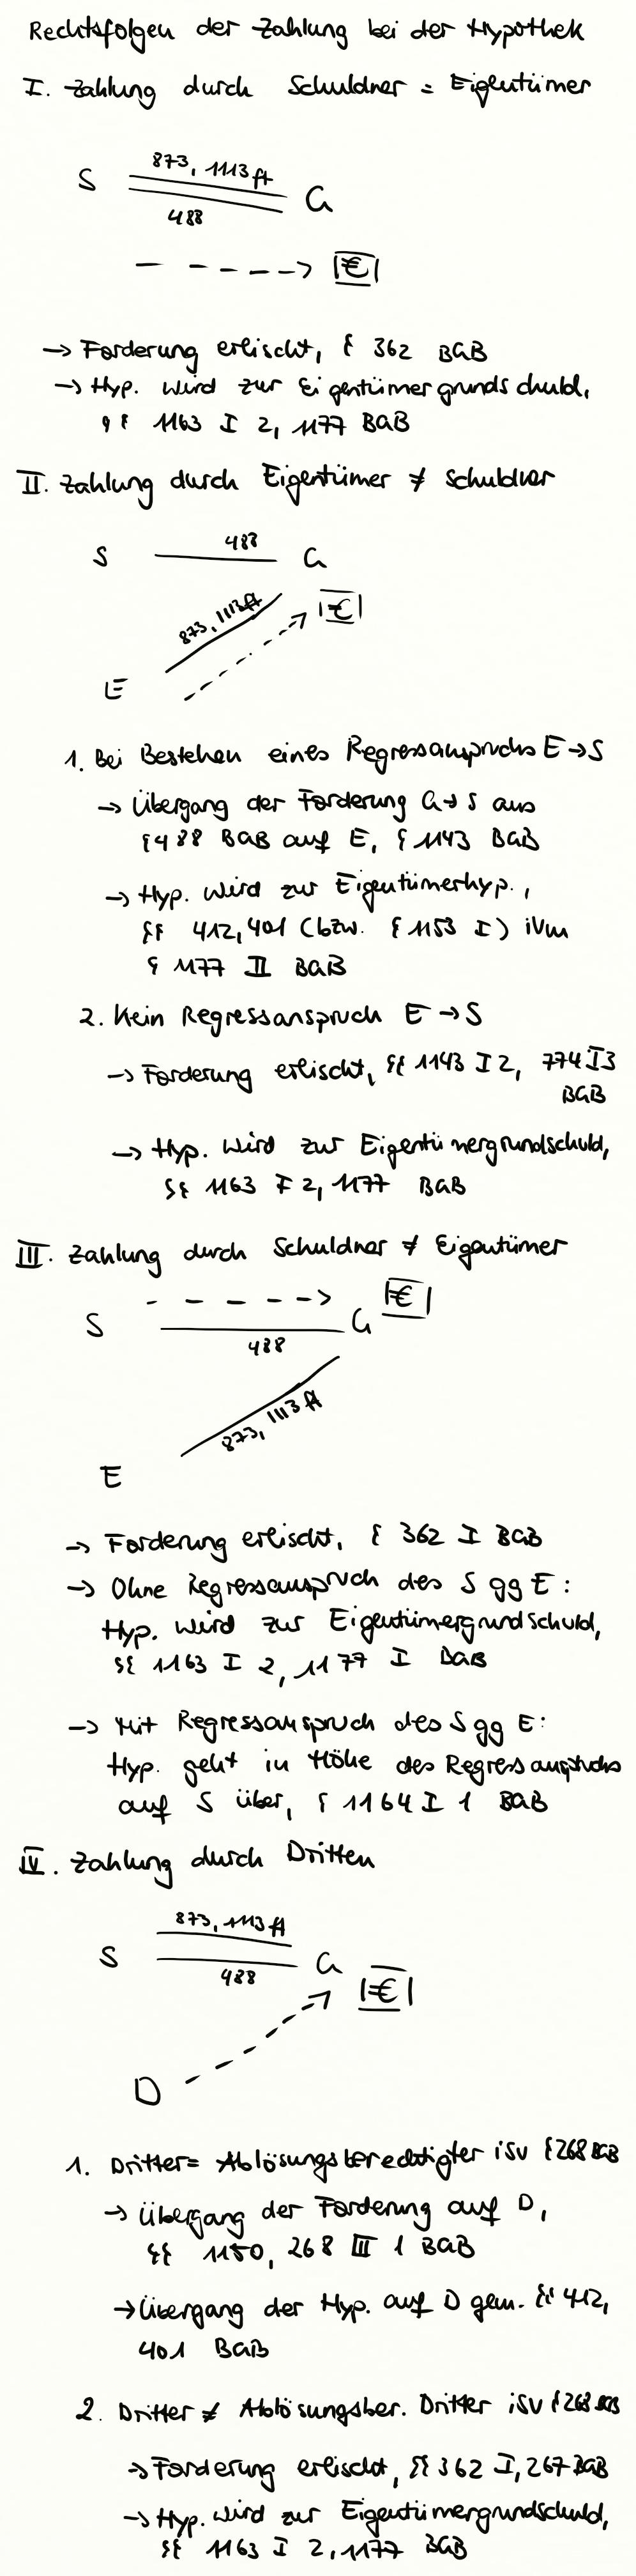 Rechtsfolgen der Zahlung bei der Hypothek
I. Zahlung durch Schuldner = Eigentümer
873, 1113 ff
S G
488
|€|
→ Forderung erlischt, § 362 BGB
→ Hyp. wird zur Eigentümergrundschuld,
§§ 1163 I 2, 1177 BGB
II. Zahlung durch Eigentümer ≠ Schuldner
488
S G
873, 1113 ff
|€|
E
1. Bei Bestehen eines Regressanspruchs E → S
→ Übergang der Forderung G → S aus
§ 488 BGB auf E, § 1143 BGB
→ Hyp. wird zur Eigentümerhyp.,
§§ 412, 401 (bzw. § 1153 I) iVm
§ 1177 II BGB
2. Kein Regressanspruch E → S
→ Forderung erlischt, §§ 1143 I 2, 774 I 3
BGB
→ Hyp. wird zur Eigentümergrundschuld,
§§ 1163 I 2, 1177 BGB
III. Zahlung durch Schuldner ≠ Eigentümer
|€|
S G
488
873, 1113 ff
E
→ Forderung erlischt, § 362 I BGB
→ Ohne Regressanspruch des S gg E:
Hyp. wird zur Eigentümergrundschuld,
§§ 1163 I 2, 1177 I BGB
→ Mit Regressanspruch des S gg E:
Hyp. geht in Höhe des Regressanspruchs
auf S über, § 1164 I 1 BGB
IV. Zahlung durch Dritten
873, 1113 ff
S G
488
|€|
D
1. Dritter = Ablösungsberechtigter iSv § 268 BGB
→ Übergang der Forderung auf D,
§§ 1150, 268 III 1 BGB
→ Übergang der Hyp. auf D gem. §§ 412,
401 BGB
2. Dritter ≠ Ablösungsber. Dritter iSv § 268 BGB
→ Forderung erlischt, §§ 362 I, 267 BGB
→ Hyp. wird zur Eigentümergrundschuld,
§§ 1163 I 2, 1177 BGB